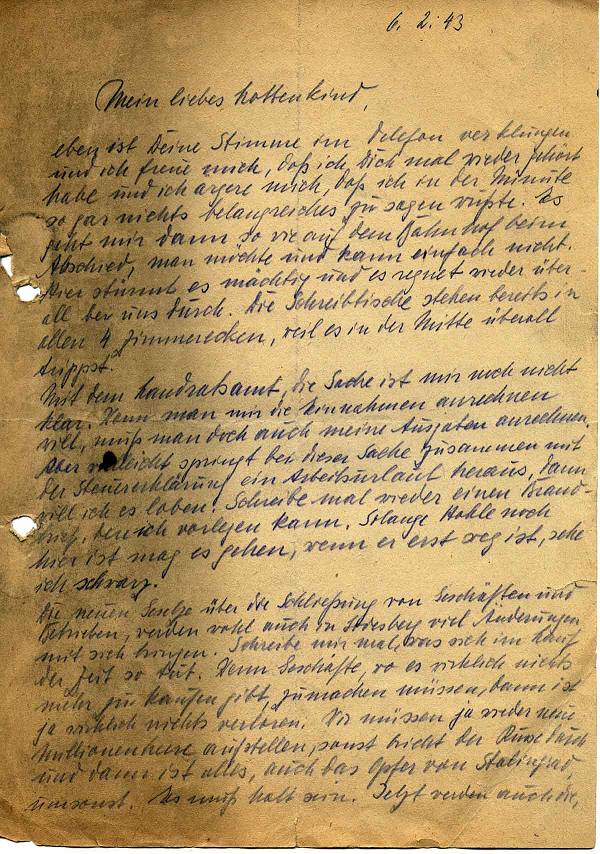 6. 2. 43
Mein liebes Mottenkind,
eben ist Deine Stimme im Telefon verklungen
und ich freue mich, daß ich Dich mal wieder gehört
habe und ich ärgere mich, daß ich in der Minute
so gar nichts belangreiches zu sagen wußte. Es
geht mir dann so wie auf dem Bahnhof beim
Abschied, man möchte und kann einfach nicht.
Hier stürmt es mächtig und es regnet wieder über-
all bei uns durch. Die Schreibtische stehen bereits in
allen 4 Zimmerecken, weil es in der Mitte überall
trippst.
Mit dem Landratsamt, die Sache ist mir noch nicht
klar. Wenn man mir die Einnahmen anrechnen
will, muß man doch auch meine Ausgaben anrechnen.
Aber vielleicht springt bei dieser Sache zusammen mit
der Steuererklärung ein Arbeitsurlaub heraus, dann
will ich es loben. Schreibe mal wieder einen Brand-
brief, den ich vorlegen kann. Solange noch
hier ist mag es gehen, wenn er erst weg ist, sehe
ich schwarz.
Die neuen Gesetze über die Schließung von Geschäften und
Betrieben, werden wohl auch in viel Änderungen
mit sich bringen. Schreibe mir mal, was sich im
der Zeit so tut. Wenn Geschäfte, wo es wirklich nichts
mehr zu kaufen gibt, zumachen müssen, dann ist
ja wirklich nichts verloren. Wir müssen ja wieder neue
Millionenheere aufstellen, sonst bricht der Russe durch
und dann ist alles, auch das Opfer von Stalingrad,
umsonst. Es muß halt sein. Jetzt werden auch die,